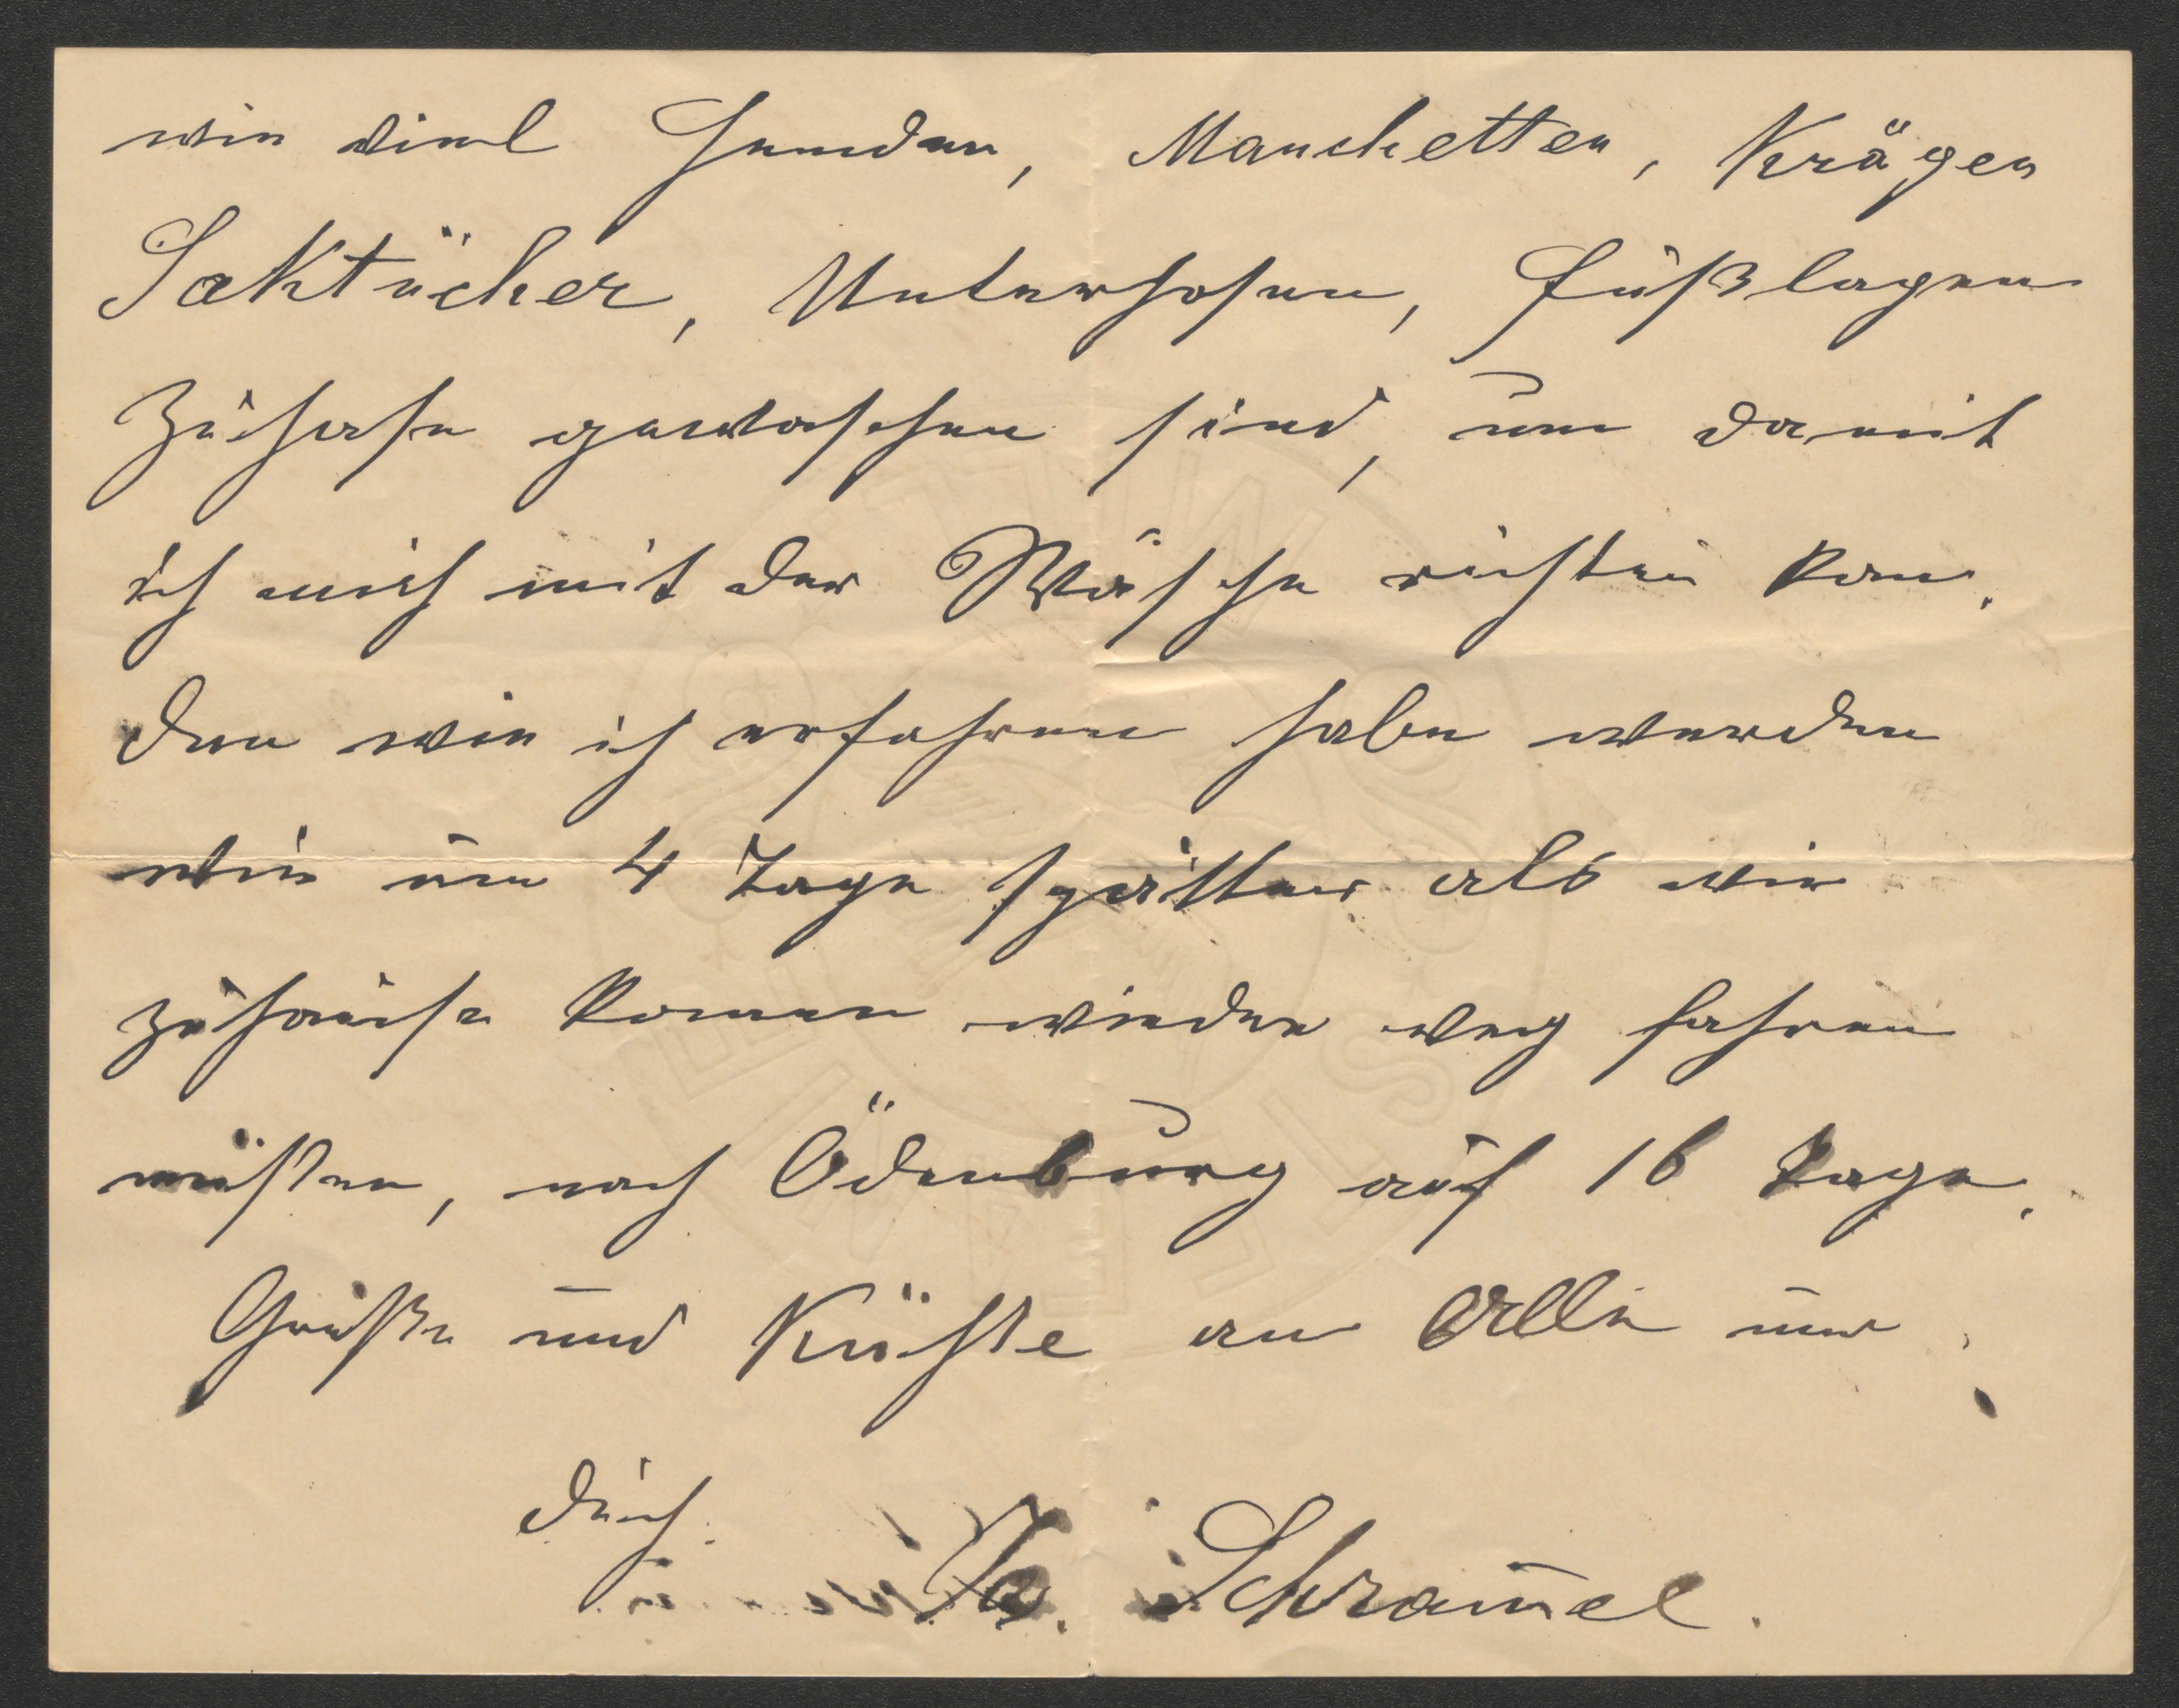 wie viel Hemden, Manchetten, Krägen
Saktücher, Unterhosen, Fußlagen
zuhause gewaschen sind, um damit
ich mich mit der Wäsche richten kan.
Den wie ich erfahren habe werden
wir um 4 Tage spätter als wir
zuhause komen wieder weg fahren
müßen, nach Ödenburg auf 16 Tage.
Grüße und Küsse an Alle nur
durch
Schramel.